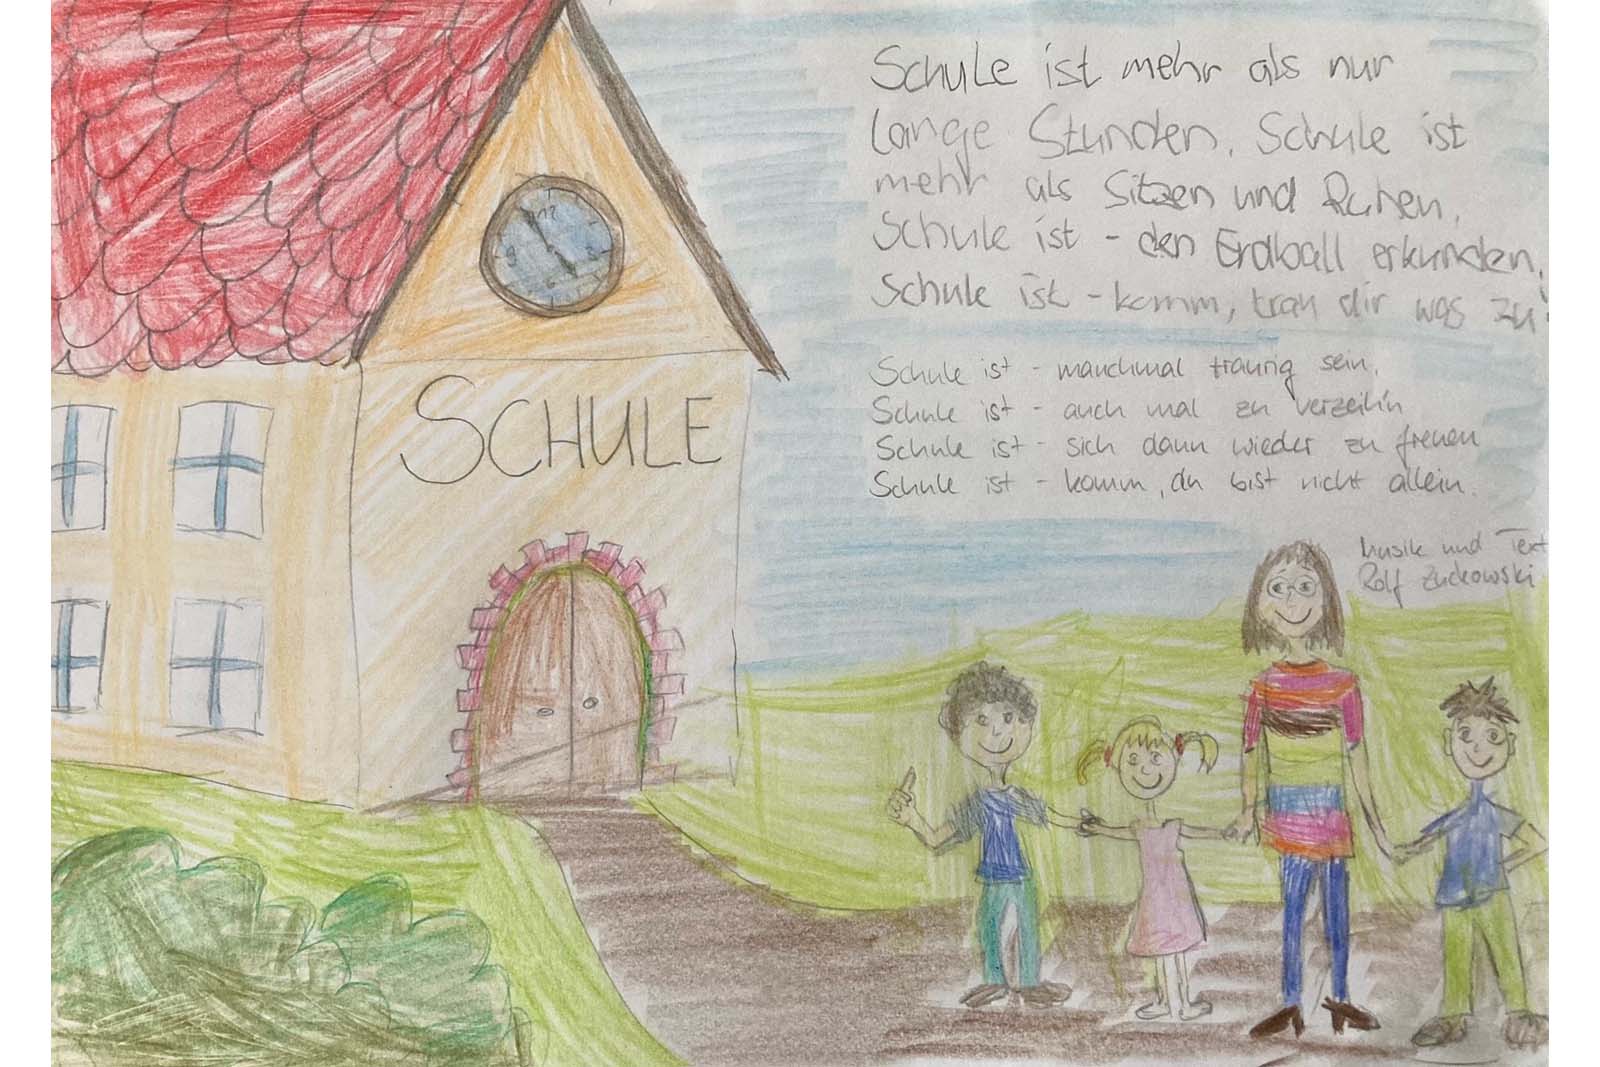 Schule ist mehr als nur
lange Stunden, Schule ist
mehr als Sitzen und Ruhen,
Schule ist - den Erdball erkunden,
Schule ist - komm, trau dir was zu!
Schule ist - manchmal traurig sein,
Schule ist - auch mal zu verzeih'n
Schule ist - sich dann wieder zu freuen
Schule ist - komm, du bist nicht allein.
Musik und Text
Rolf Zuckowski
12
9
3
6
SCHULE